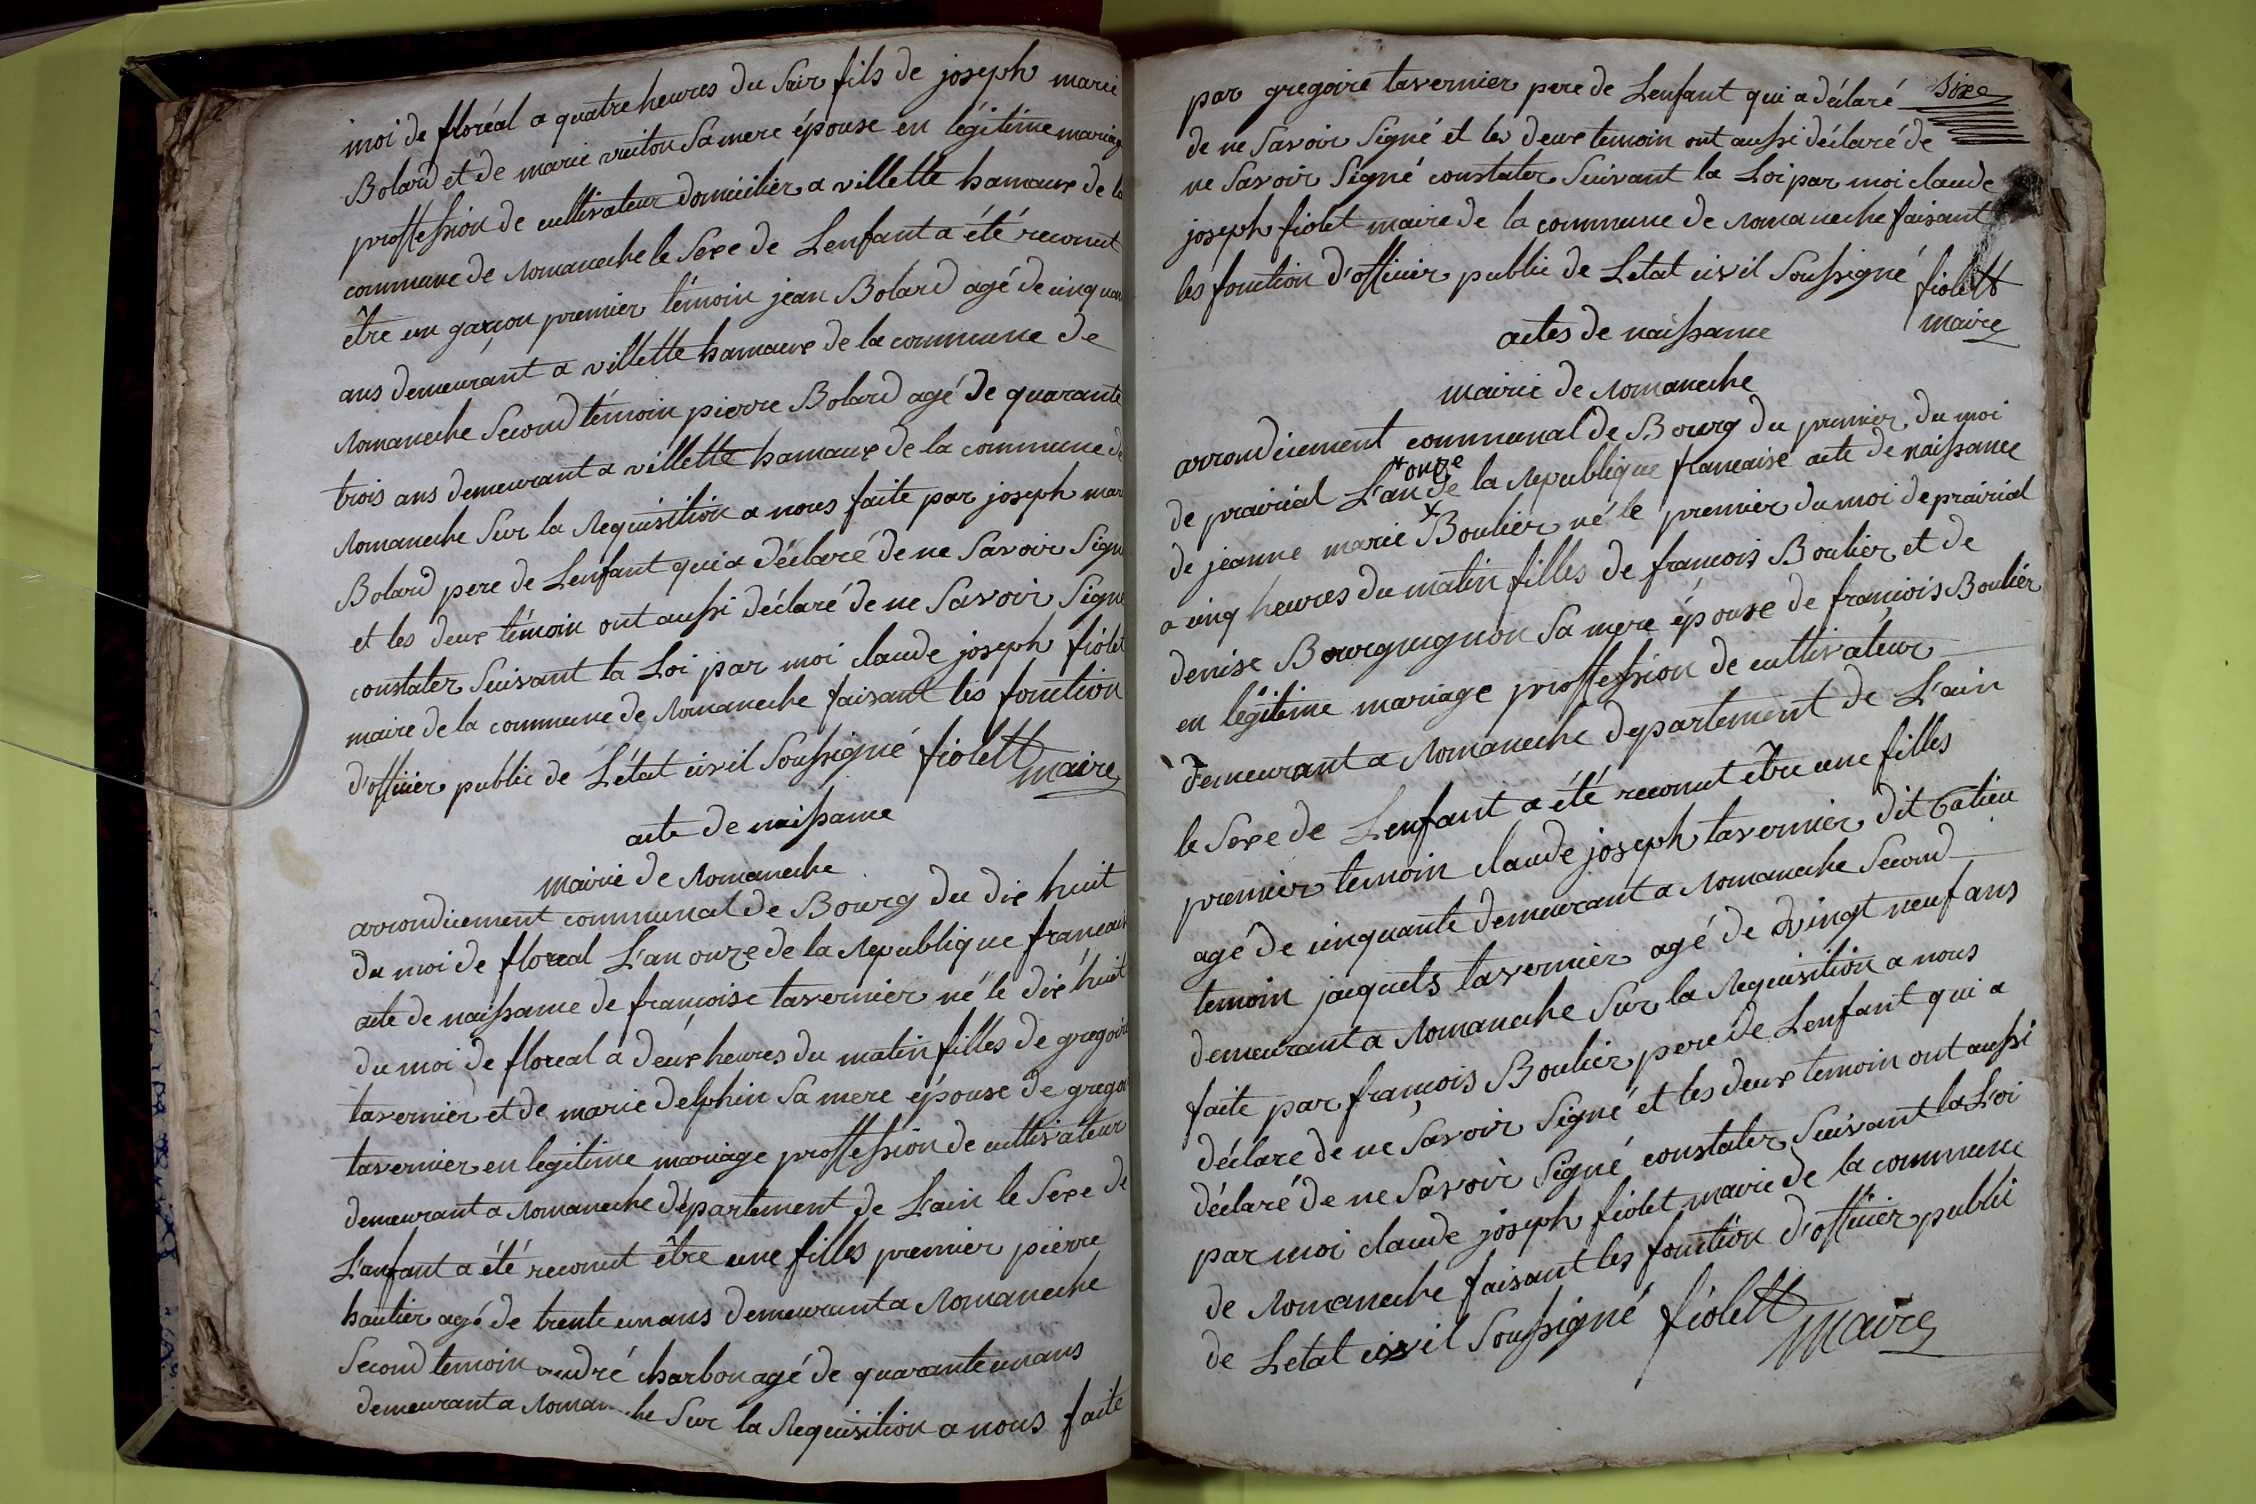 moi de floréal a quatre heures du Soir fils de joseph marie
Bolard et de marie vuiton Sa mere épouse en légitime mariag
proffession de cultivateur domicilier a villette hamaux de la
commune de Romaneche le Sexe de Lenfant a été reconut
être un garçon premier témoin jean Bolard agé de cinquan
ans demeurant a villette hamaux de la commune de
Romaneche Second témoin pierre Bolard agé de quarante
trois ans demeurant a villette hamaux de la commune de
Romaneche Sur la Requisition a nous faite par joseph mar
Bolard pere de Lenfant qui a déclaré de ne Savoir Signé
et les deux témoin ont aussi déclaré de ne Savoir Signé
constater Suivant la Loi par moi claude joseph fiolet
maire de la commune de Romaneche faisant les fonction
d'officier public de L'état civil Soussigné fiolett maire
acte de naissance
mairie de Romaneche
arrondicement communal de Bourg du dix huit
du moi de floreal L'an onze de la Republique francaise
acte de naissance de françoise tavernier né le dix huit
du moi de floreal a deux heures du matin filles de gregoire
tavernier et de marie delphin Sa mere épouse de gregoi
tavernier en legitime mariage proffession de cultivateur
demeurant a Romaneche département de L'ain le Sexe de
L'anfant a été reconut être une filles premier pierre
hautier agé de trente un ans demeurant a Romaneche
Second temoin andré charbon agé de quarante un ans
demeurant a Romaneche Sur la Requisition a nous faite
par gregoire tavernier pere de Lenfant qui a déclaré Sixe
de ne Savoir Signé et les deux temoin ont aussi déclaré de
ne Savoir Signé constater Suivant la Loi par moi claude
joseph fiolet maire de la commune de Romaneche faisant
les fonction d'officier public de Letat civil Soussigné fiolett
maire
actes de naissance
mairie de Romaneche
arrondicement communal de Bourg du premier du moi
de prairial L'an onze de la Republique francaise acte de naissance
de jeanne marie Boulier né le premier du moi de prairial
a cinq heures du matin filles de francois Boulier et de
denise Bourguignon Sa mere épouse de françois Boulier
en légitime mariage proffession de cultivateur
demeurant a Romaneche departement de L'ain
le Sexe de Lenfant a été reconut être une filles
premier temoin claude joseph tavernier dit Catieu
agé de cinquante demeurant a Romaneche Second
temoin jacquets tavernier agé de vingt neuf ans
demeurant a Romaneche Sur la Requisition a nous
faite par françois Boulier pere de Lenfant qui a
déclare de ne Savoir Signé et les deux temoin ont aussi
déclaré de ne Savoir Signé constater Suivant la Loi
par moi claude joseph fiolet maire de la commune
de Romaneche faisant les fonction d'officier public
de Letat civil Soussigné fiolett maire